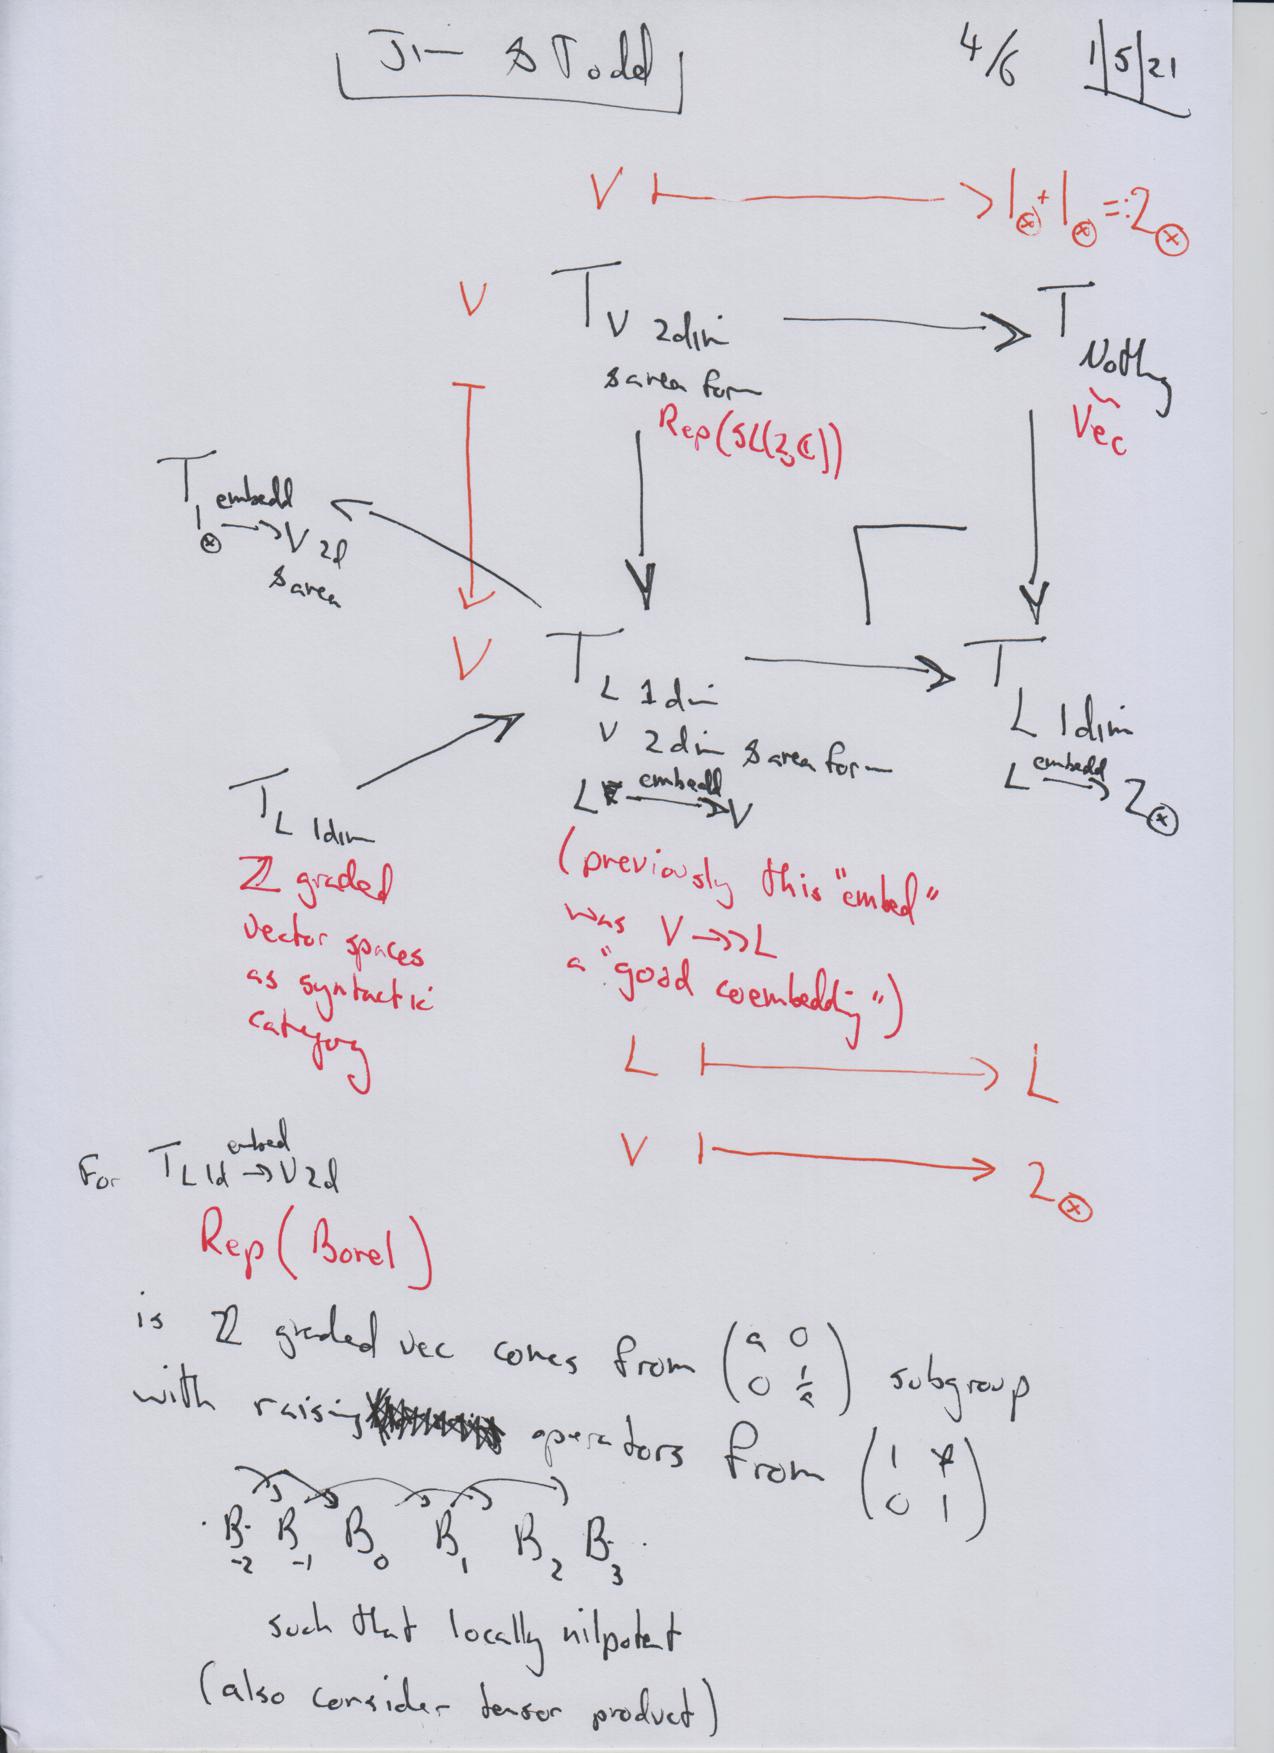 Jim & Todd 4/6 1/5/21
V ↦ 1⊗ + 1⊗ =: 2⊗
V T V 2dim T Nothing
& area form Vec
Rep(SL(2,ℂ))
T embedd
1⊗ → V 2d
& area
V T L 1dim T L 1dim
V 2dim & area form L embedd → 2⊗
L embedd → V
T L 1dim
ℤ graded
vector spaces
as syntactic
category
(previously this "embed"
was V →» L
a "good coembedding")
L ↦ L
V ↦ 2⊗
For T L 1d embed → V 2d
Rep(Borel)
is ℤ graded vec comes from (a 0 / 0 1/a) subgroup
with raising operators from (1 * / 0 1)
· B-2 B-1 B0 B1 B2 B3 ·
such that locally nilpotent
(also consider tensor product)